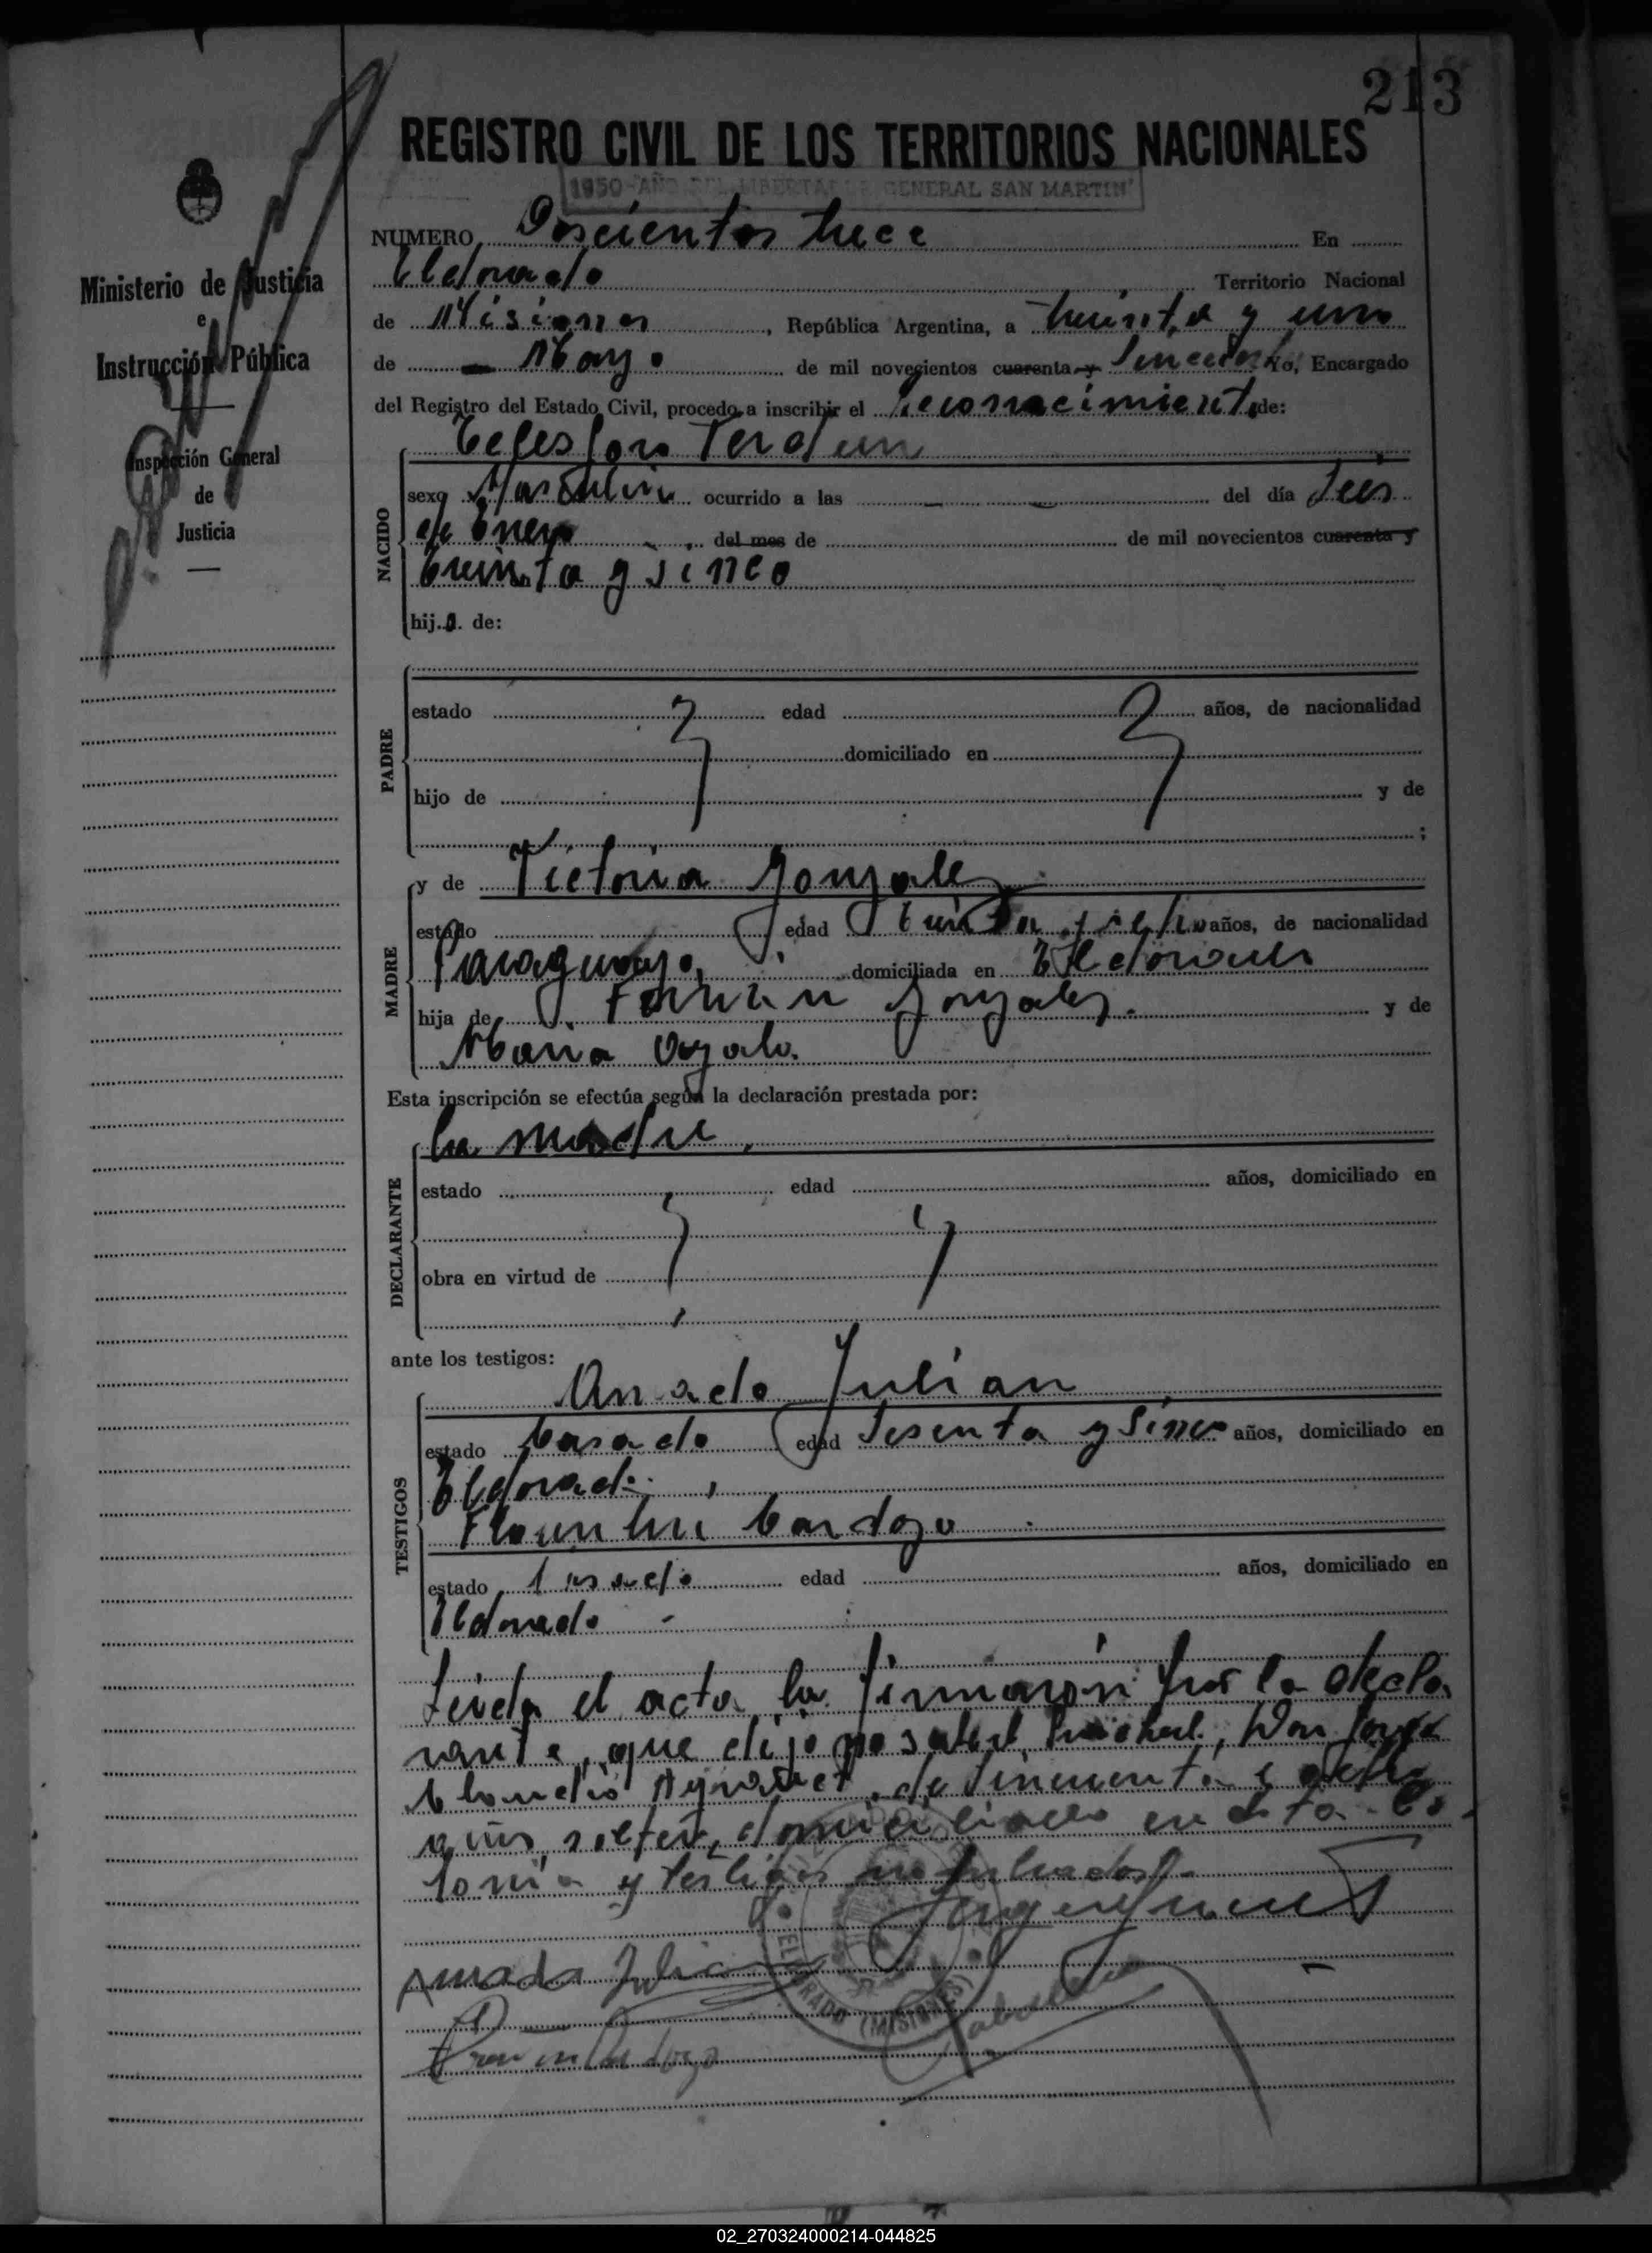 213
REGISTRO CIVIL DE LOS TERRITORIOS NACIONALES
1950-AÑO DEL LIBERTADOR GENERAL SAN MARTIN
NUMERO Doscientos trece En
Eldorado Territorio Nacional
de Misiones, República Argentina, a treinta y uno
de Mayo de mil novecientos cuarenta y Sincuenta Yo, Encargado
del Registro del Estado Civil, procedo a inscribir el Reconocimiento de:
NACIDO
Celesforo Verdun
sexo Masculino ocurrido a las del día Seis
de Enero del mes de de mil novecientos cuarenta y
treinta y sinco
hijo de:
PADRE
estado edad años, de nacionalidad
domiciliado en
hijo de y de
;
MADRE
y de Victoria Gonzalez
estado edad treinta y años, de nacionalidad
Paraguayo, domiciliada en Eldorado
hija de Gonzalez. y de
Maria
Esta inscripción se efectúa según la declaración prestada por:
DECLARANTE
la madre.
estado edad años, domiciliado en
obra en virtud de
ante los testigos:
TESTIGOS
Amado Julian
estado Casado edad Sesenta y Sinco años, domiciliado en
Eldorado
Cardozo
estado Casado edad años, domiciliado en
Eldorado
Leida el acta la firmaron por la decla
rante, que dijo no saber hacerlo, Don Jorge
de sincuenta
años, soltero, domiciliado en esta Co
lonia y testigos
Amado Julian
ELDORADO (MISIONES)
Ministerio de Justicia
e
Instrucción Pública
Inspección General
de
Justicia
02_270324000214-044825